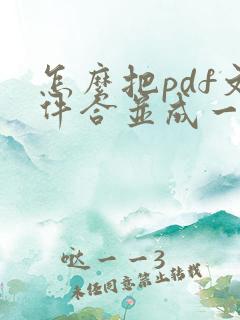 怎麼把pdf文
件合並成一
哒一一3
未经同意禁止转载